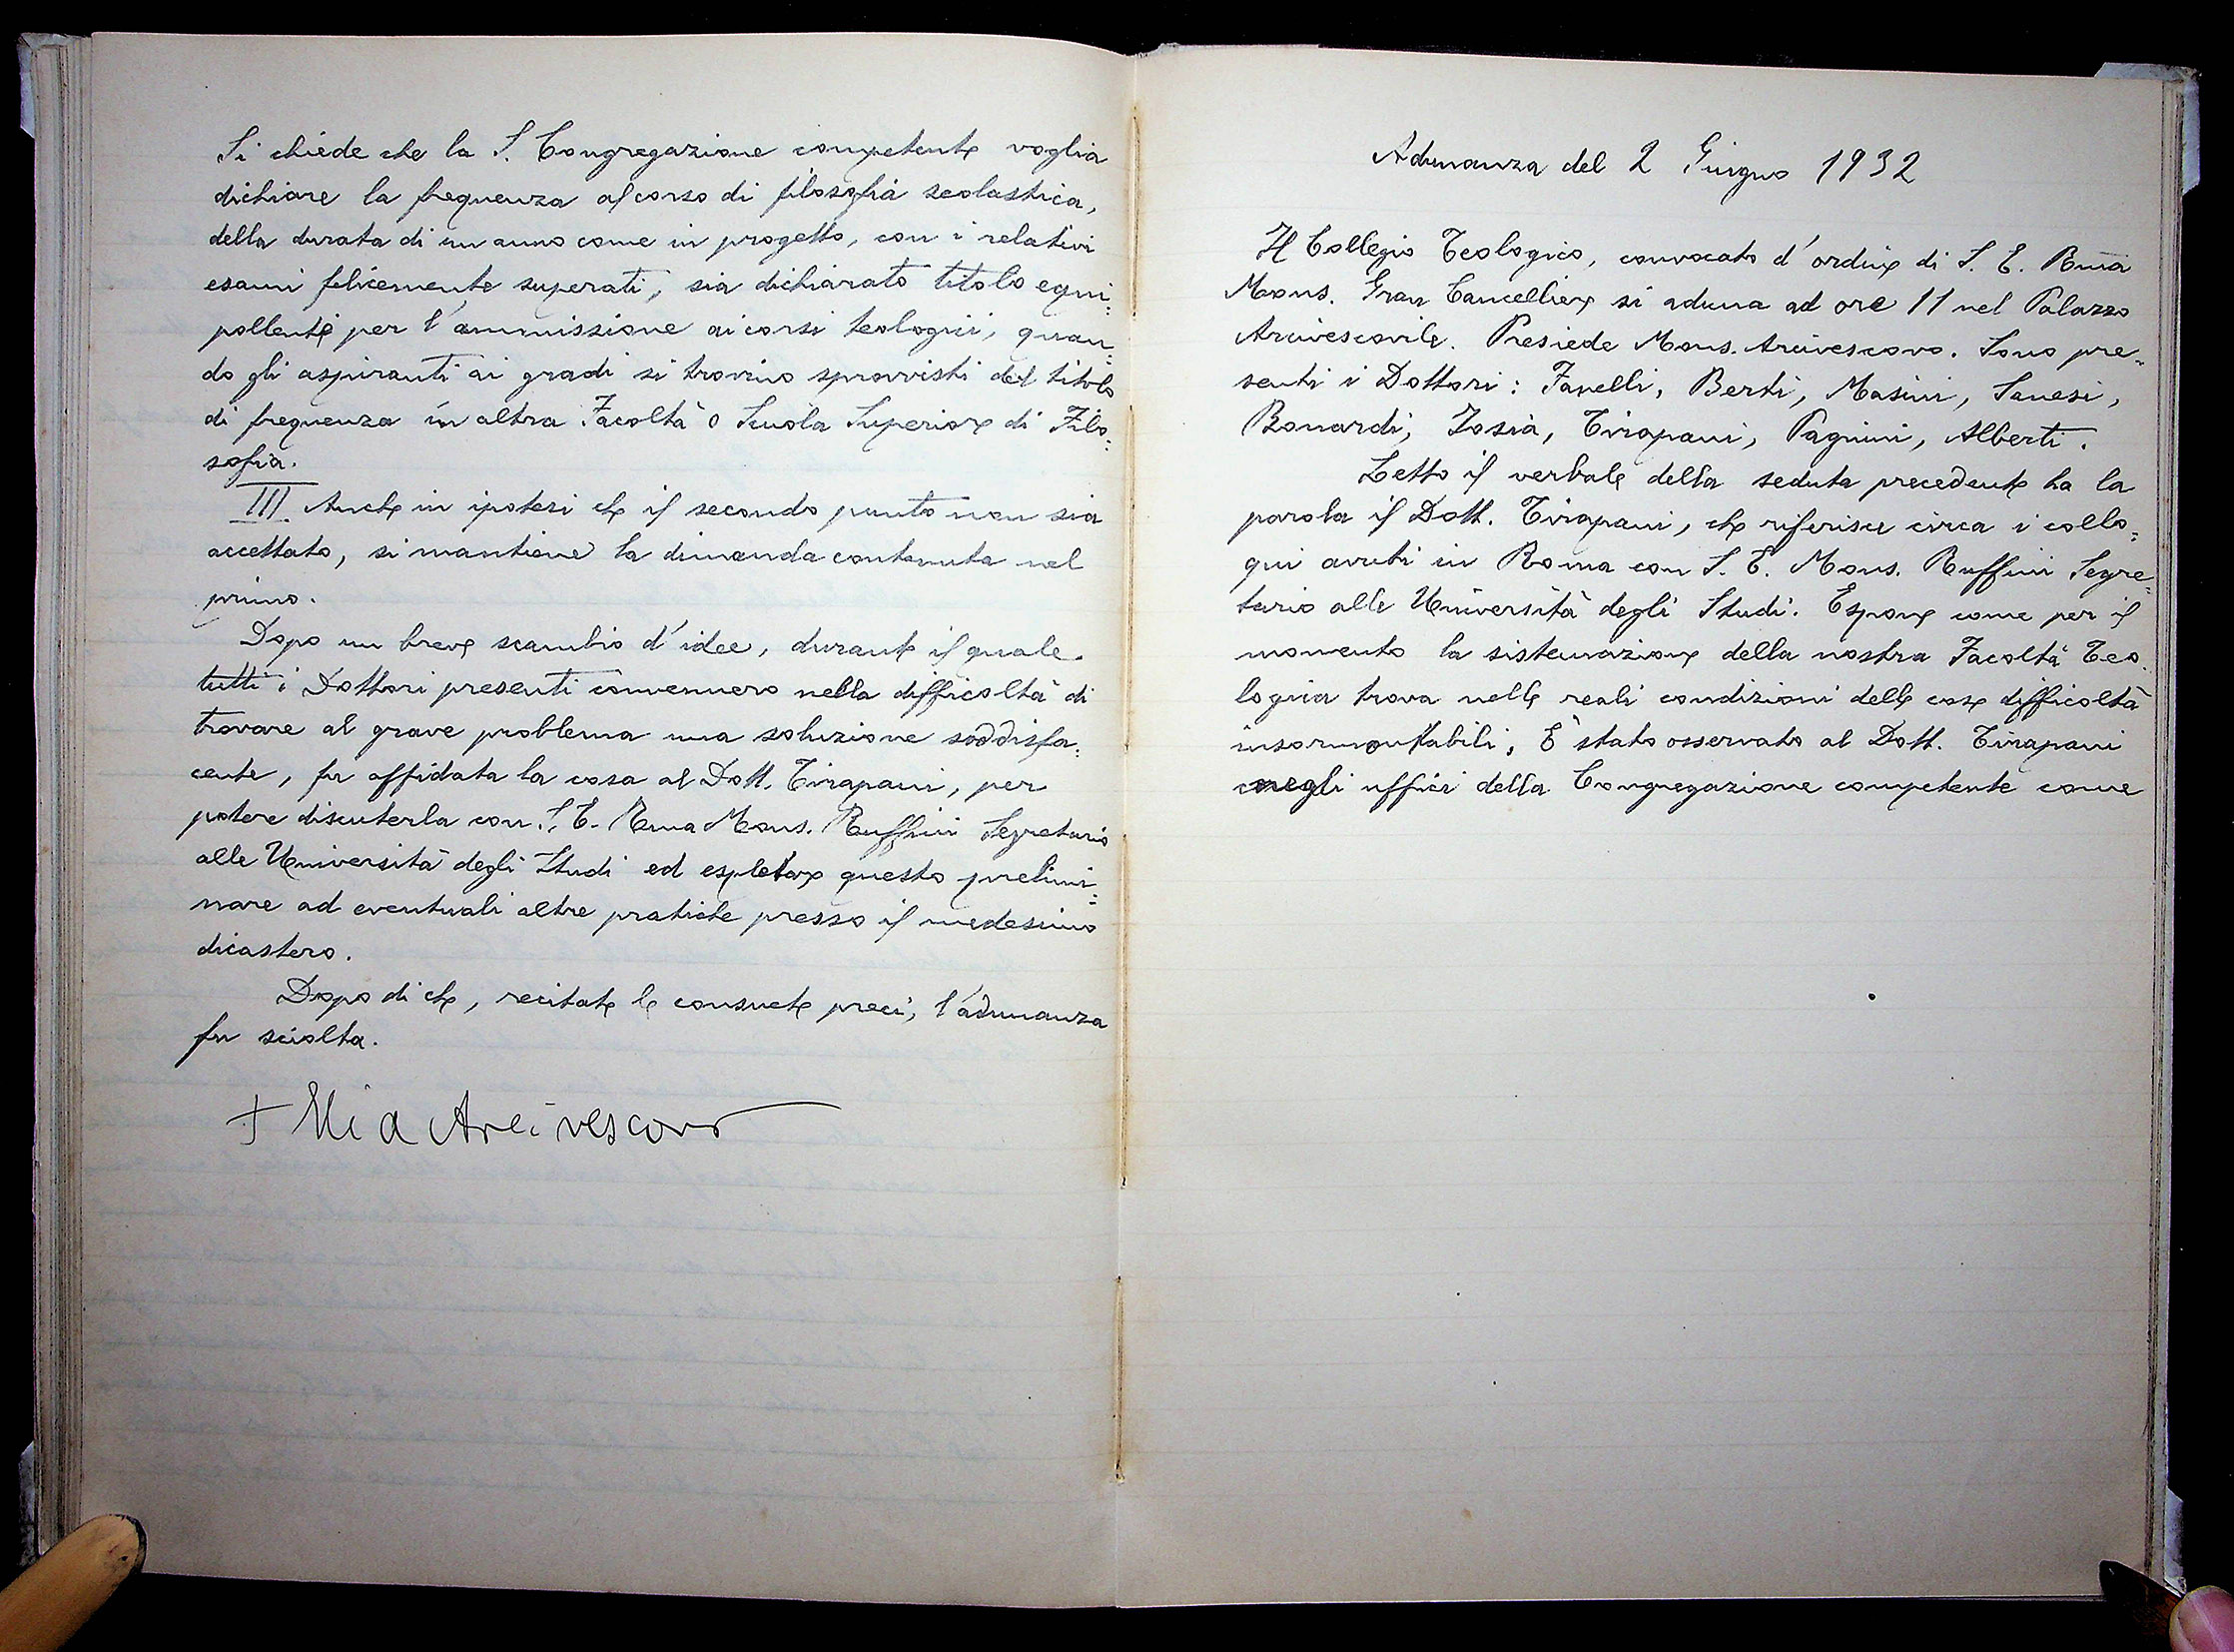 Si chiede che la S. Congregazione competente voglia
dichiare la frequenza al corso di filosofia scolastica,
della durata di un anno come in progetto, con i relativi
esami felicemente superati, sia dichiarato titolo equi=
pollente per l'ammissione ai corsi teologici, quan=
do gli aspiranti ai gradi si trovino sprovvisti del titolo
di frequenza in altra Facoltà o Scuola Superiore di Filo=
sofia.
III Anche in ipotesi che il secondo punto non sia
accettato, si mantiene la dimanda contenuta nel
primo.
Dopo un breve scambio d'idee, durante il quale
tutti i Dottori presenti convennero nella difficoltà di
trovare al grave problema una soluzione soddisfa=
cente, fu affidata la cosa al Dott. Tirapani, per
potere discuterla con S. E. Rma Mons. Ruffini Segretario
alle Università degli Studi ed espletare questo prelimi=
nare ad eventuali altre pratiche presso il medesimo
dicastero.
Dopo di che, recitate le consuete preci, l'adunanza
fu sciolta.
+ Elia Arcivescovo
Adunanza del 2 Giugno 1932
Il Collegio Teologico, convocato d'ordine di S. E. Rma
Mons. Gran Cancelliere si aduna ad ore 11 nel Palazzo
Arcivescovile. Presiede Mons. Arcivescovo. Sono pre=
senti i Dottori: Fanelli, Berti, Masini, Sanesi,
Bonardi, Iosia, Tirapani, Pagnini, Alberti.
Letto il verbale della seduta precedente ha la
parola il Dott. Tirapani, che riferisce circa i collo=
qui avuti in Roma con S. E. Mons. Ruffini Segre=
tario alle Università degli Studi. Espone come per il
momento la sistemazione della nostra Facoltà Teo
logica trova nelle reali condizioni delle cose difficoltà
insormontabili; È stato osservato al Dott. Tirapani
negli uffici della Congregazione competente come